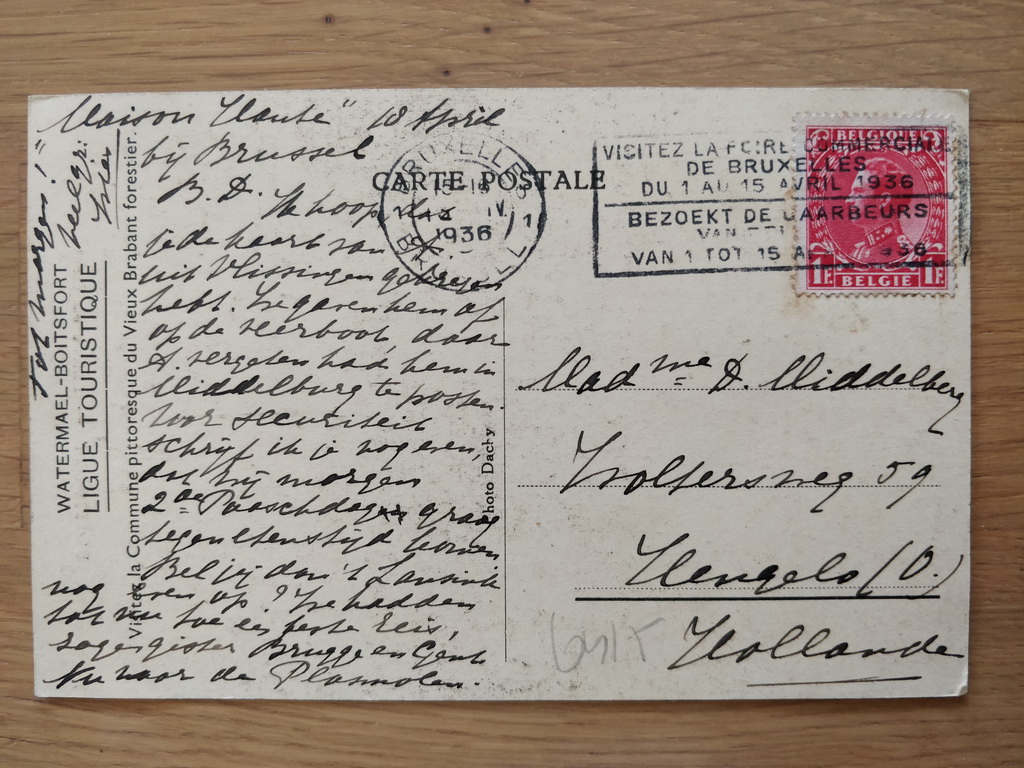 "Maison Haute" 18 April
bij Brussel
B. D. Ik hoop dat
je de kaart van
uit Vlissingen gekregen
hebt. We gaven hem af
op de veerboot, daar
A. vergeten had hem in
Middelburg te posten.
Voor securiteit
schrijf ik je nog even,
dat wij morgen
2de Paaschdag graag
tegen etenstijd komen.
Bel jij dan 't Lansink
nog even op? We hadden
tot nu toe een beste reis,
zagen gister Brugge en Gent
Nu naar de Plasmolen.
Tot morgen!"
WATERMAEL-BOITSFORT
LIGUE TOURISTIQUE
Visitez la Commune pittoresque du Vieux Brabant forestier.
CARTE POSTALE
BRUXELLES
IV
1936
BRUSSEL
VISITEZ LA FOIRE COMMERCIALE
DE BRUXELLES
DU 1 AU 15 AVRIL 1936
BEZOEKT DE JAARBEURS
VAN
VAN 1 TOT 15 A 36
BELGIQUE
1F 1F
BELGIE
Photo Dachy
Madme D. Middelberg
Woltersweg 59
Hengelo (O.)
Hollande